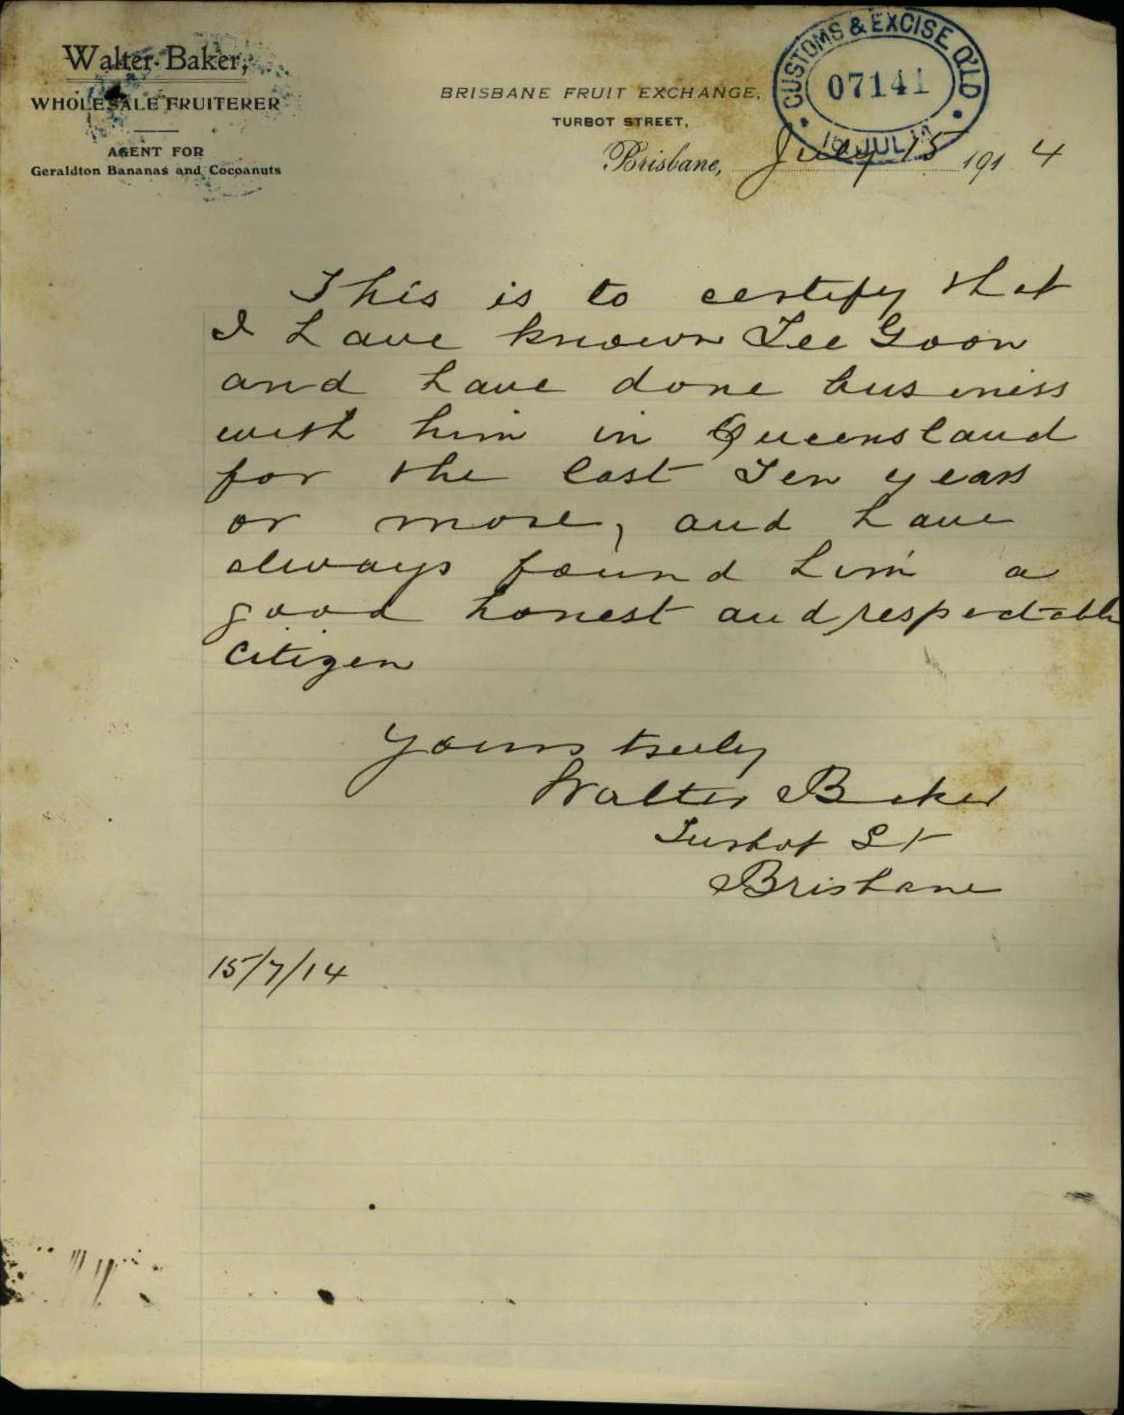 Walter Baker,
WHOLESALE FRUITERER
AGENT FOR
Geraldton Bananas and Cocoanuts
BRISBANE FRUIT EXCHANGE,
TURBOT STREET,
Brisbane, July 15 1914
CUSTOMS & EXCISE Q'LD
07141
JUL
This is to certify that
I have known Lee Goon
and have done business
with him in Queensland
for the last Ten years
or more, and have
always found him a
good honest and respectable
citizen
Yours truly
Walter Baker
Turbot St
Brisbane
15/7/14